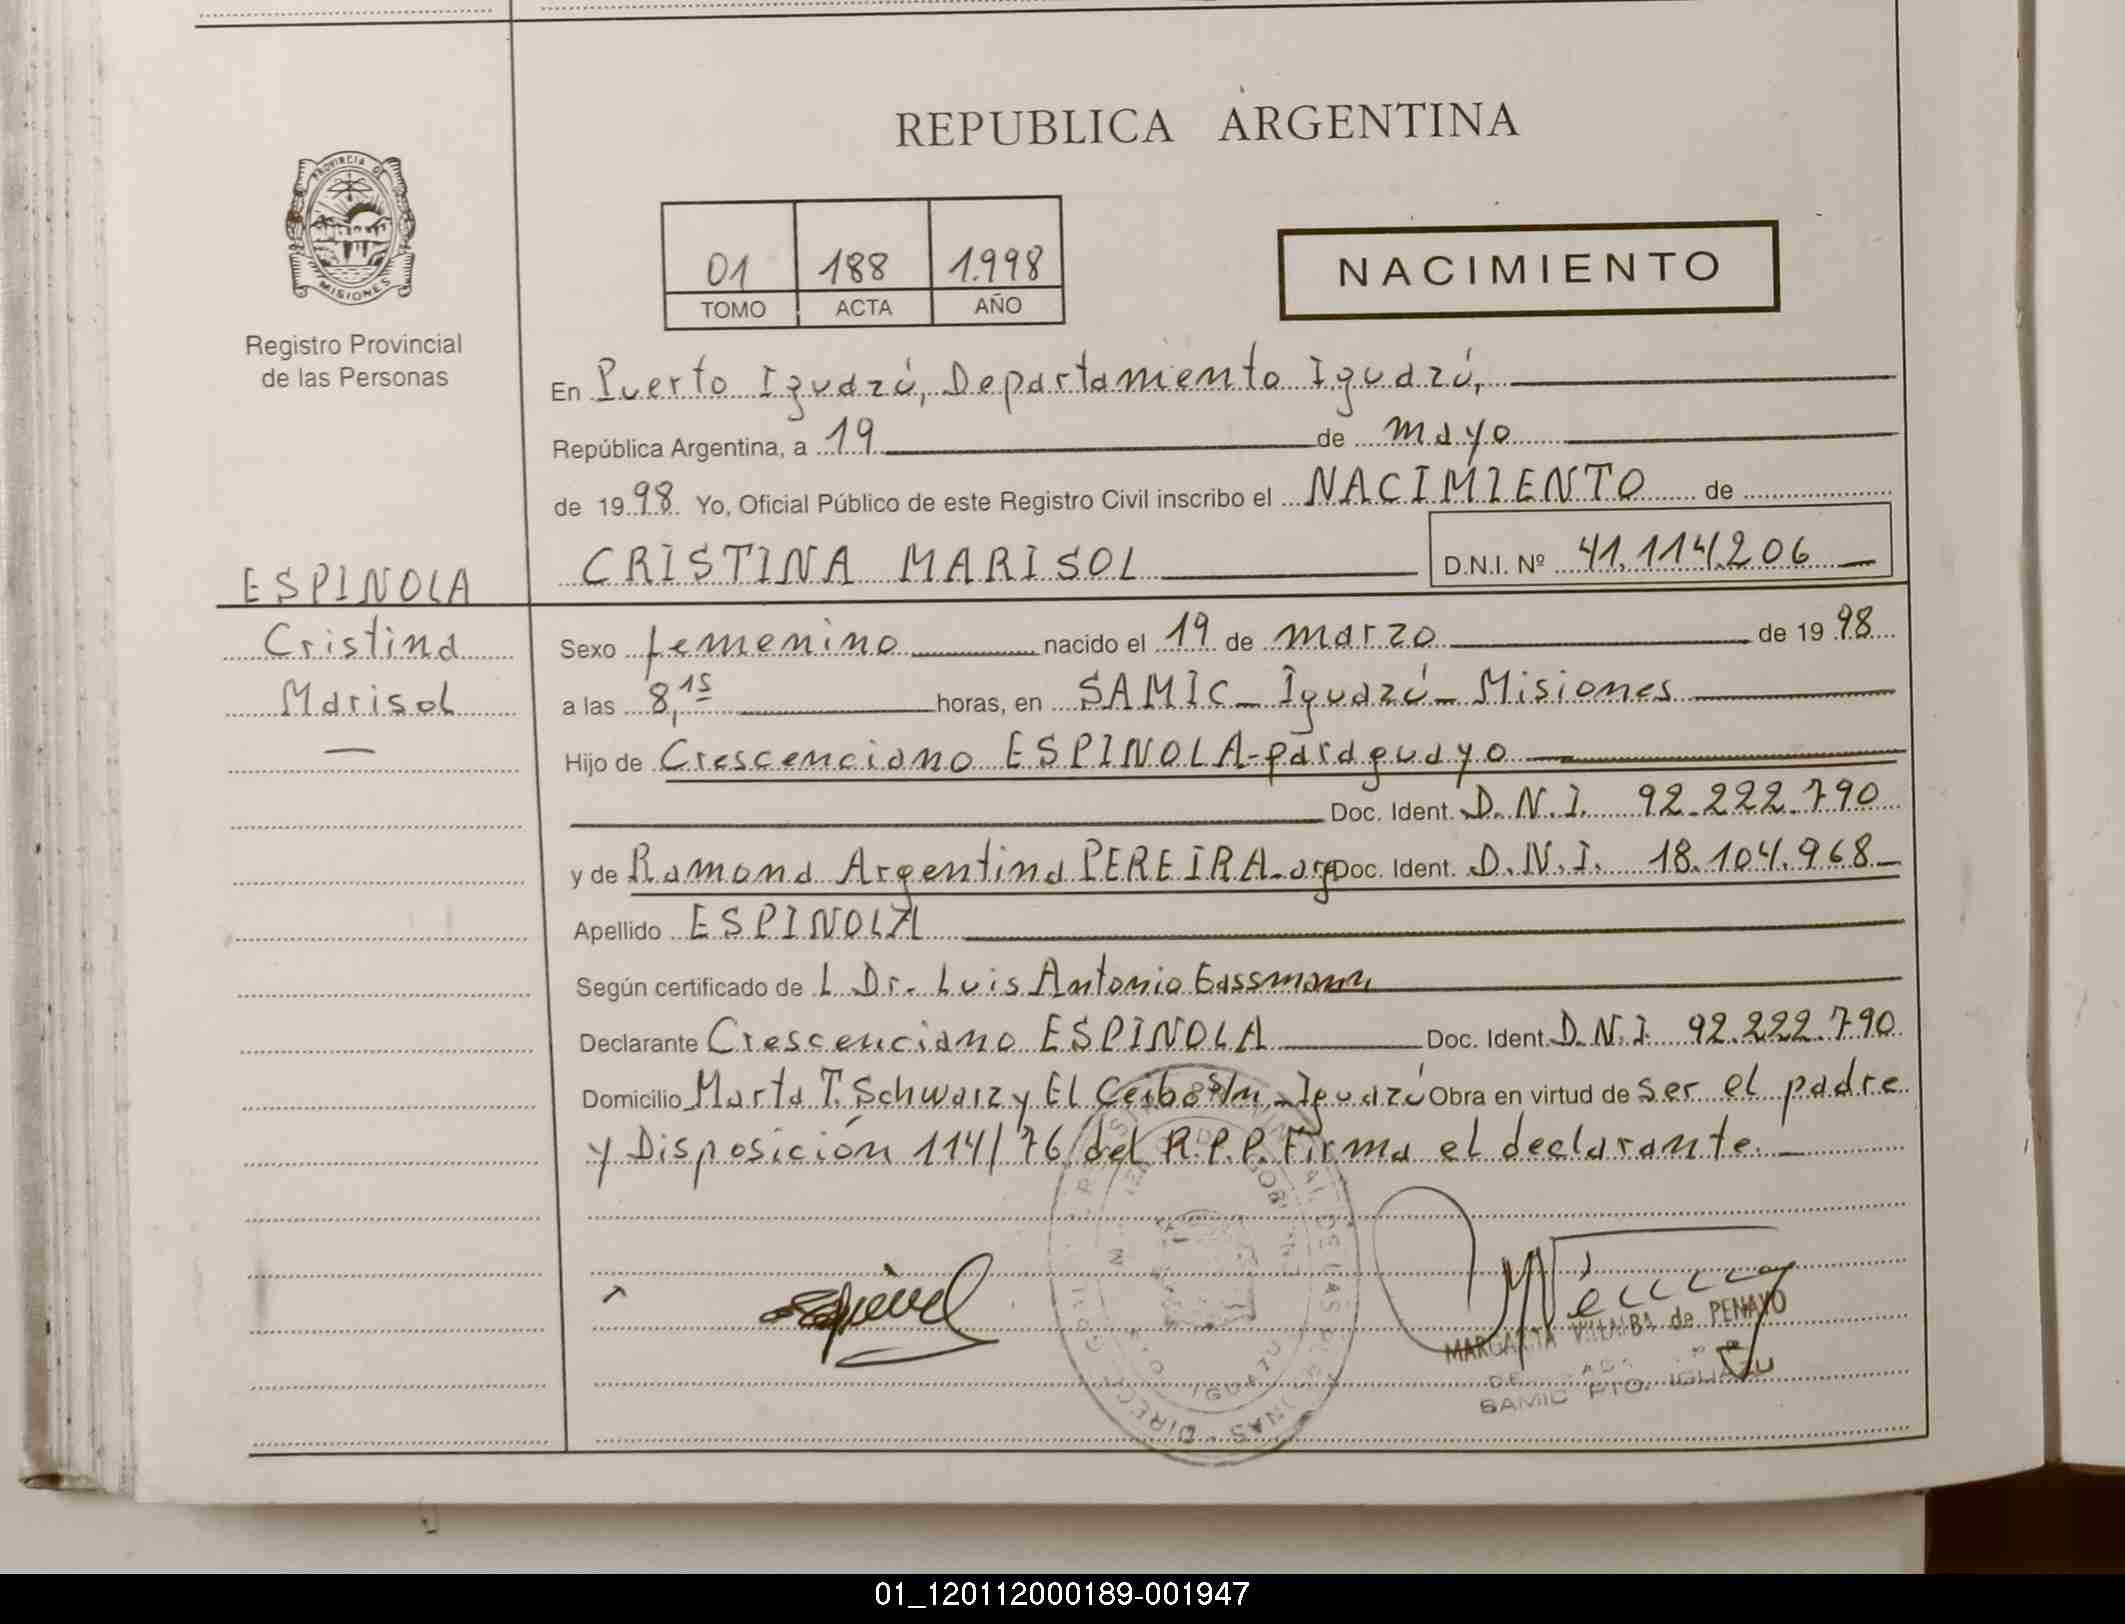 REPUBLICA ARGENTINA
PROVINCIA DE
MISIONES
Registro Provincial
de las Personas
01 188 1.998
TOMO ACTA AÑO
NACIMIENTO
En Puerto Iguazú, Departamiento Iguazú,
República Argentina, a 19 de mayo
de 1998 Yo, Oficial Público de este Registro Civil inscribo el NACIMIENTO de
CRISTINA MARISOL D.N.I. Nº 41.114.206
ESPINOLA
Cristina
Marisol
Sexo femenino nacido el 19 de marzo de 1998
a las 8,15 horas, en SAMIC - Iguazú - Misiones
Hijo de Crescenciano ESPINOLA - paraguayo
Doc. Ident. D.N.I. 92.222.790
y de Ramona Argentina PEREIRA - arg Doc. Ident. D.N.I. 18.104.968
Apellido ESPINOLA
Según certificado de L Dr. Luis Antonio Gassmann
Declarante Crescenciano ESPINOLA Doc. Ident. D.N.I. 92.222.790
Domicilio Marta T. Schwarz y El Ceibo S/n - Iguazú Obra en virtud de ser el padre
y Disposición 114/76 del R.P.P. Firma el declarante.
MARGARITA VILLALBA de PENAYO
SAMIC PTO. IGUAZU
01_120112000189-001947